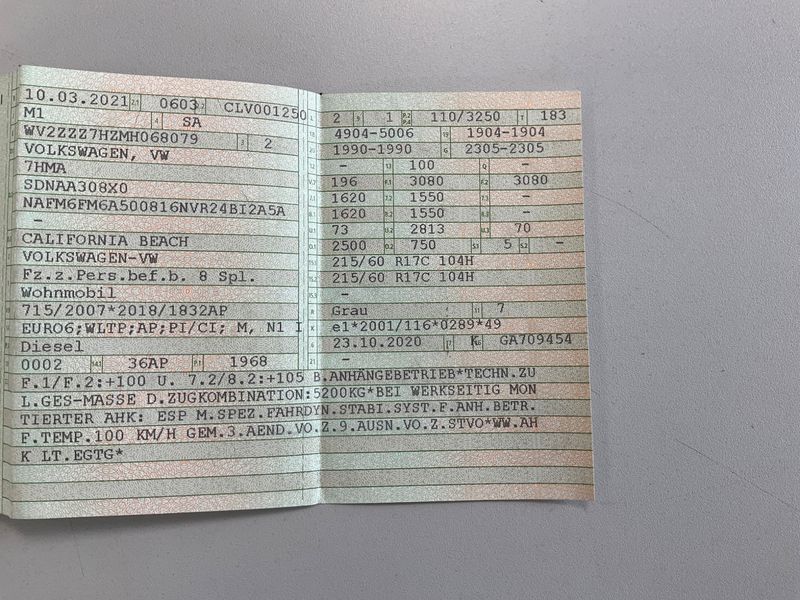 10.03.2021 0603 CLV001250
M1 SA
WV2ZZZ7HZMH068079 2
VOLKSWAGEN, VW
7HMA
SDNAA308X0
NAFM6FM6A500816NVR24BI2A5A
–
CALIFORNIA BEACH
VOLKSWAGEN-VW
Fz.z.Pers.bef.b. 8 Spl.
Wohnmobil
715/2007*2018/1832AP
EURO6;WLTP;AP;PI/CI; M, N1 I
Diesel
0002 36AP 1968
2 1 110/3250 183
4904-5006 1904-1904
1990-1990 2305-2305
– 100 –
196 3080 3080
1620 1550 –
1620 1550 –
73 2813 70
2500 750 5 –
215/60 R17C 104H
215/60 R17C 104H
–
Grau 7
e1*2001/116*0289*49
23.10.2020 K GA709454
–
F.1/F.2:+100 U. 7.2/8.2:+105 B.ANHÄNGEBETRIEB*TECHN.ZU
L.GES-MASSE D.ZUGKOMBINATION:5200KG*BEI WERKSEITIG MON
TIERTER AHK: ESP M.SPEZ.FAHRDYN.STABI.SYST.F.ANH.BETR.
F.TEMP.100 KM/H GEM.3.AEND.VO.Z.9.AUSN.VO.Z.STVO*WW.AH
K LT.EGTG*